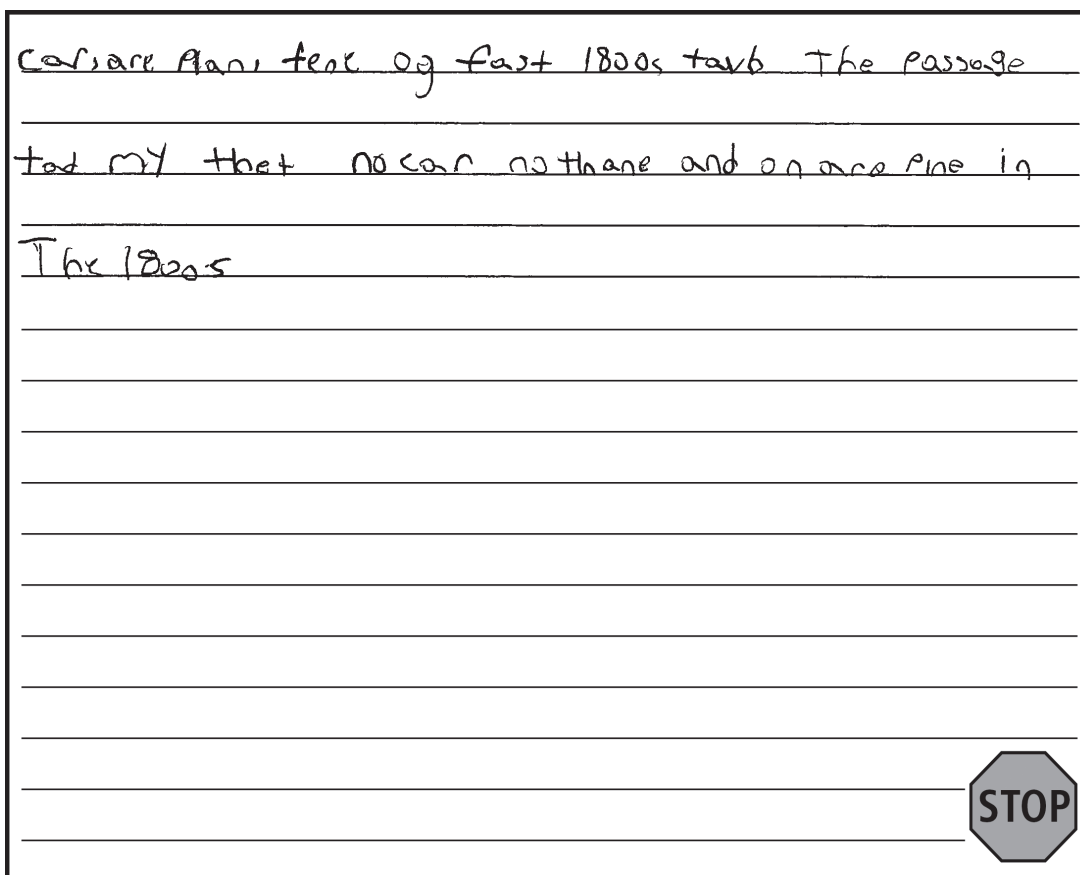 Cars, are Plan, tene og fast 1800s tavb The Passage
tod my thet no car no thane and on are Pine in
The 1800s
STOP